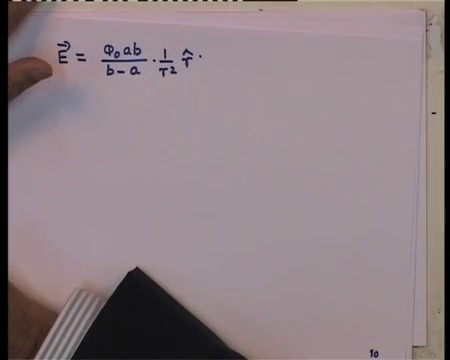 E⃗ = φ₀ab / (b - a) · 1/r² r̂ ·
10